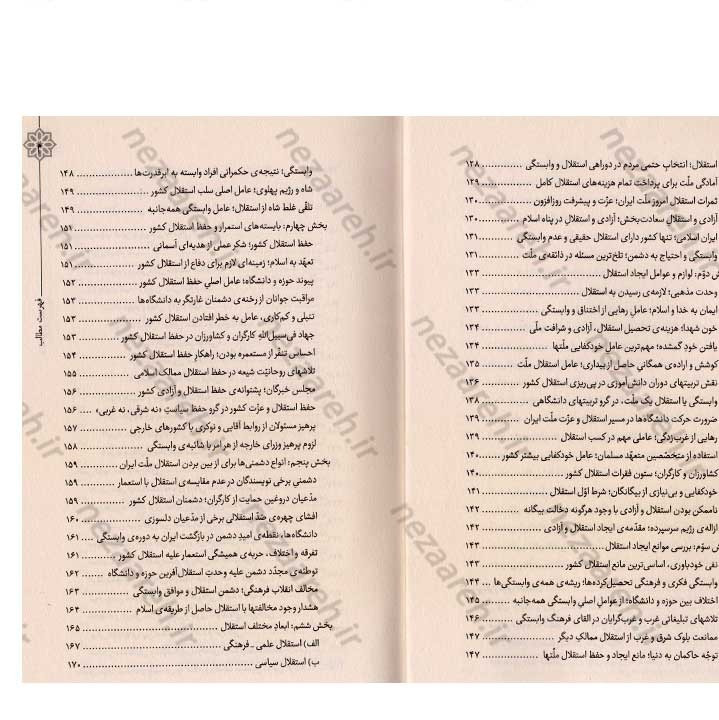 استقلال؛ انتخاب حتمی مردم در دوراهی استقلال و وابستگی ............. ۱۲۸
آمادگی ملّت برای پرداخت تمام هزینه‌های استقلال کامل ............. ۱۲۹
ثمرات استقلال امروز ملّت ایران؛ عزّت و پیشرفت روزافزون ............. ۱۳۰
آزادی و استقلالِ سعادت‌بخش؛ آزادی و استقلال در پناه اسلام ............. ۱۳۰
ایران اسلامی؛ تنها کشور دارای استقلال حقیقی و عدم وابستگی ............. ۱۳۱
وابستگی و احتیاج به دشمن؛ تلخ‌ترین مسئله در ذائقه‌ی ملّت ............. ۱۳۱
ش دوّم: لوازم و عوامل ایجاد استقلال ............. ۱۳۳
وحدت مذهبی؛ لازمه‌ی رسیدن به استقلال ............. ۱۳۳
ایمان به خدا و اسلام؛ عامل رهایی از اختناق و وابستگی ............. ۱۳۳
خون شهدا؛ هزینه‌ی تحصیل استقلال، آزادی و شرافت ملّی ............. ۱۳۴
یافتن خودِ گمشده؛ مهم‌ترین عامل خودکفایی ملّتها ............. ۱۳۴
کوشش و اراده‌ی همگانیِ حاصل از بیداری؛ عامل استقلال ملّت ............. ۱۳۵
نقش تربیتهای دوران دانش‌آموزی در پی‌ریزی استقلال کشور ............. ۱۳۶
وابستگی یا استقلال یک ملّت، در گرو تربیتهای دانشگاهی ............. ۱۳۸
ضرورت حرکت دانشگاه‌ها در مسیر استقلال و عزّت ملّت ایران ............. ۱۳۹
رهایی از غرب‌زدگی؛ عاملی مهم در کسب استقلال ............. ۱۳۹
استفاده از متخصّصین متعهّد مسلمان؛ عامل خودکفایی بیشتر کشور ............. ۱۴۰
کشاورزان و کارگران؛ ستون فقرات استقلال کشور ............. ۱۴۰
خودکفایی و بی‌نیازی از بیگانگان؛ شرط اوّل استقلال ............. ۱۴۱
ناممکن بودن استقلال و آزادی با وجود هرگونه دخالت بیگانه ............. ۱۴۲
ازاله‌ی رژیم سرسپرده؛ مقدّمه‌ی ایجاد استقلال و آزادی ............. ۱۴۲
ش سوّم: بررسی موانع ایجاد استقلال ............. ۱۴۳
نفی خودباوری، اساسی‌ترین مانع استقلال کشور ............. ۱۴۳
وابستگی فکری و فرهنگی تحصیل‌کرده‌ها؛ ریشه‌ی همه‌ی وابستگی‌ها ... ۱۴۴
اختلاف بین حوزه و دانشگاه؛ از عوامل اصلی وابستگی همه‌جانبه ............. ۱۴۵
تلاشهای تبلیغاتی غرب و غرب‌گرایان در القای فرهنگ وابستگی ............. ۱۴۶
ممانعت بلوک شرق و غرب از استقلال ممالک دیگر ............. ۱۴۷
توجّه حاکمان به دنیا؛ مانع ایجاد و حفظ استقلال ملّتها ............. ۱۴۷
وابستگی؛ نتیجه‌ی حکمرانی افراد وابسته به ابرقدرت‌ها ............. ۱۴۸
شاه و رژیم پهلوی؛ عامل اصلی سلب استقلال کشور ............. ۱۴۹
تلقّی غلط شاه از استقلال؛ عامل وابستگی همه‌جانبه ............. ۱۴۹
بخش چهارم: بایسته‌های استمرار و حفظ استقلال کشور ............. ۱۵۱
حفظ استقلال کشور؛ شکر عملی از هدیه‌ای آسمانی ............. ۱۵۱
تعهّد به اسلام؛ زمینه‌ای لازم برای دفاع از استقلال کشور ............. ۱۵۱
پیوند حوزه و دانشگاه؛ عامل اصلیِ حفظ استقلال کشور ............. ۱۵۲
مراقبت جوانان از رخنه‌ی دشمنان غارتگر به دانشگاه‌ها ............. ۱۵۳
تنبلی و کم‌کاری، عامل به خطر افتادن استقلال کشور ............. ۱۵۳
جهاد فی‌سبیل‌اللهِ کارگران و کشاورزان در حفظ استقلال کشور ............. ۱۵۳
احساس تنفّر از مستعمره بودن؛ راهکار حفظ استقلال کشور ............. ۱۵۴
تلاشهای روحانیّت شیعه در حفظ استقلال ممالک اسلامی ............. ۱۵۵
مجلس خبرگان؛ پشتوانه‌ی حفظ استقلال و آزادی کشور ............. ۱۵۶
حفظ استقلال و عزّت کشور در گرو حفظ سیاستِ «نه شرقی، نه غربی» .... ۱۵۶
پرهیز مسئولان از روابط آقایی و نوکری با کشورهای خارجی ............. ۱۵۷
لزوم پرهیز وزرای خارجه از هر امر با شائبه‌ی وابستگی ............. ۱۵۸
بخش پنجم: انواع دشمنی‌ها برای از بین بردن استقلال ملّت ایران ............. ۱۵۹
دشمنی برخی نویسندگان در عدم مقایسه‌ی استقلال با استعمار ............. ۱۵۹
مدّعیان دروغین حمایت از کارگران؛ دشمنان استقلال کشور ............. ۱۵۹
افشای چهره‌ی ضدّ استقلالی برخی از مدّعیان دلسوزی ............. ۱۶۰
دانشگاه‌ها، نقطه‌ی امیدِ دشمن در بازگشت ایران به دوره‌ی وابستگی .... ۱۶۱
تفرقه و اختلاف، حربه‌ی همیشگی استعمار علیه استقلال کشور ............. ۱۶۱
توطئه‌ی مجدّد دشمن علیه وحدتِ استقلال‌آفرین حوزه و دانشگاه ...... ۱۶۲
مخالف انقلاب فرهنگی؛ دشمن استقلال و موافق وابستگی ............. ۱۶۳
هشدار وجود مخالفتها با استقلال حاصل از طریقه‌ی اسلام ............. ۱۶۴
بخش ششم: ابعاد مختلف استقلال ............. ۱۶۵
الف) استقلال علمی ـ فرهنگی ............. ۱۶۷
ب) استقلال سیاسی ............. ۱۷۰
فهرست مطالب
nezaareh.ir